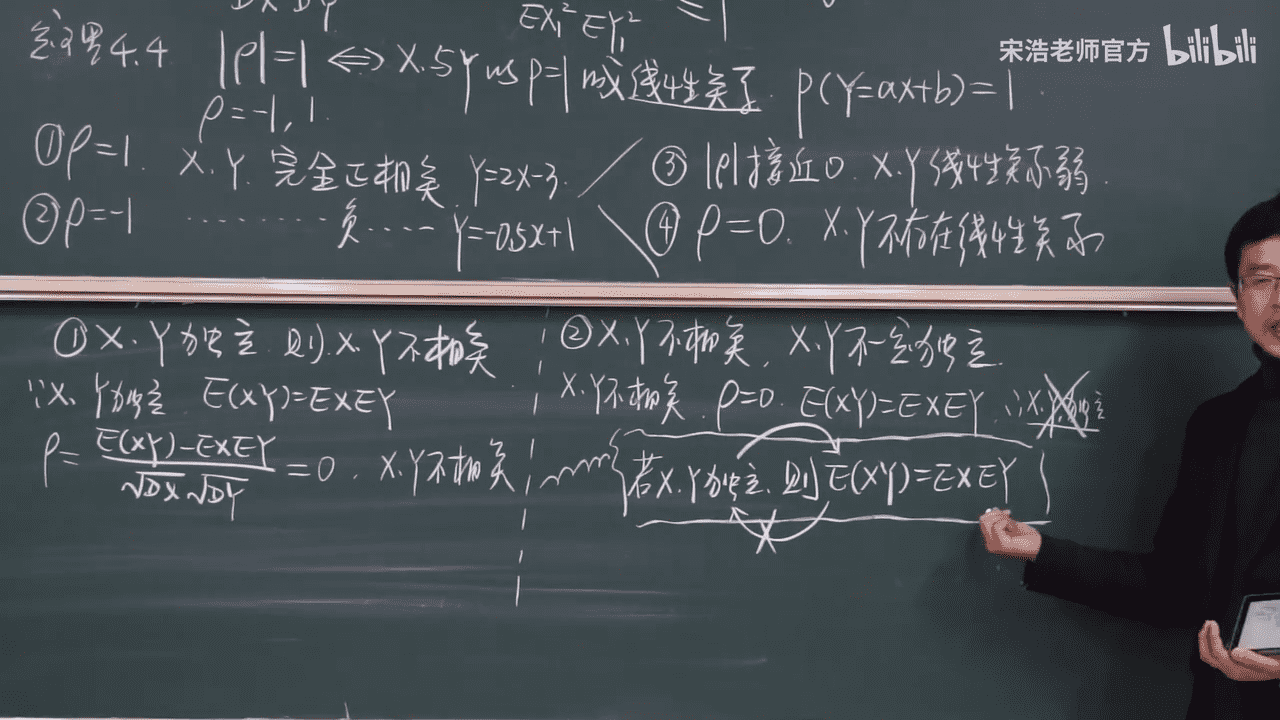 DX DY
EX₁² EY₁² ≤ 1
宋浩老师官方 bilibili
定理4.4 |ρ|=1 ⇔ X.与Y以P=1成线性关系. P(Y=aX+b)=1.
ρ=-1, 1.
①ρ=1. X.Y.完全正相关. Y=2X-3.
②ρ=-1 ········负····· Y=-0.5X+1
③ |ρ|接近0. X.Y线性关系弱.
④ ρ=0. X.Y不存在线性关系
①X.Y独立.则.X.Y不相关
∵X.Y独立. E(XY)=EXEY
ρ= E(XY)-EXEY / √DX √DY =0. X.Y不相关
②X.Y不相关, X.Y不一定独立.
X.Y不相关. ρ=0. E(XY)=EXEY. ∵X.Y独立
若X.Y独立.则E(XY)=EXEY